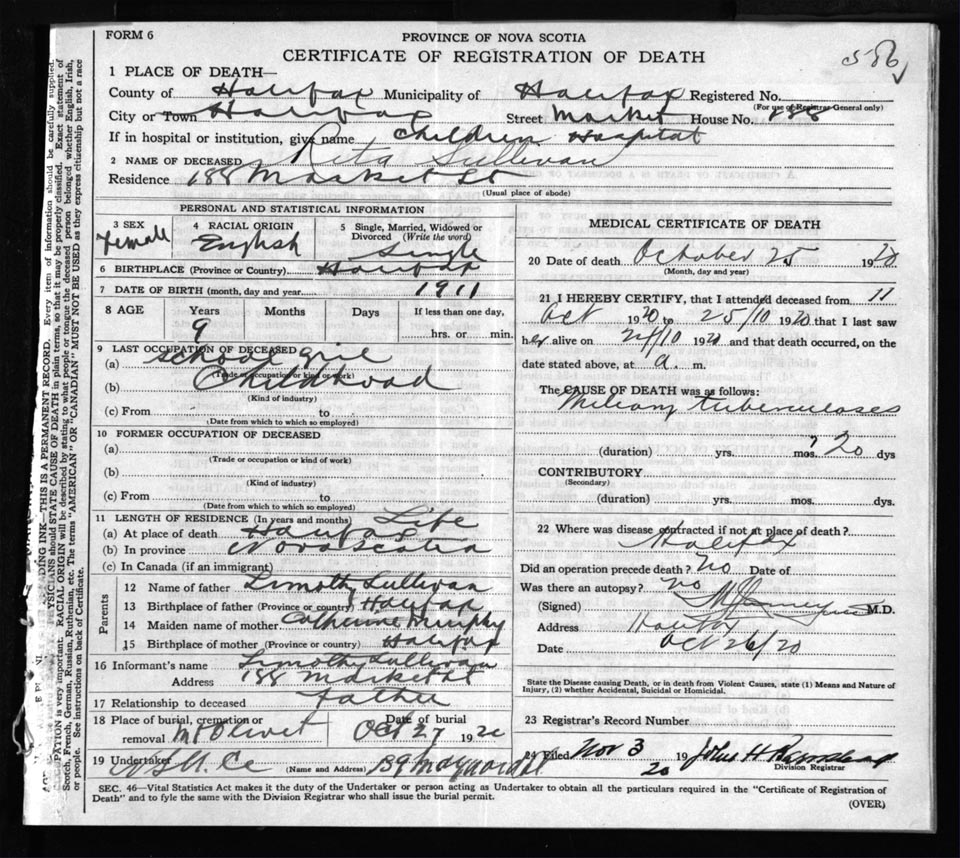 FORM 6
PROVINCE OF NOVA SCOTIA
CERTIFICATE OF REGISTRATION OF DEATH
586
1 PLACE OF DEATH—
County of Halifax Municipality of Halifax Registered No.
(For use of Registrar General only)
City or Town Halifax Street Market House No. 188
If in hospital or institution, give name Children Hospital
2 NAME OF DECEASED Rita Sullivan
Residence 188 Market St
(Usual place of abode)
PERSONAL AND STATISTICAL INFORMATION
3 SEX Female
4 RACIAL ORIGIN English
5 Single, Married, Widowed or Divorced (Write the word) Single
6 BIRTHPLACE (Province or Country) Halifax
7 DATE OF BIRTH (month, day and year) 1911
8 AGE Years Months Days If less than one day,
9 hrs. or min.
9 LAST OCCUPATION OF DECEASED
(a) School girl
(Trade, occupation or kind of work)
(b) Childhood
(Kind of industry)
(c) From to
(Date from which to which so employed)
10 FORMER OCCUPATION OF DECEASED
(a)
(Trade or occupation or kind of work)
(b)
(Kind of industry)
(c) From to
(Date from which to which so employed)
11 LENGTH OF RESIDENCE (In years and months) Life
(a) At place of death Halifax
(b) In province Nova Scotia
(c) In Canada (if an immigrant)
Parents
12 Name of father Timothy Sullivan
13 Birthplace of father (Province or country) Halifax
14 Maiden name of mother Catherine Murphy
15 Birthplace of mother (Province or country) Halifax
16 Informant's name Timothy Sullivan
Address 188 Market St
17 Relationship to deceased Father
18 Place of burial, cremation or removal Mt Olivet Date of burial Oct 27 1920
19 Undertaker (Name and Address) 139 Maynard St
MEDICAL CERTIFICATE OF DEATH
20 Date of death October 25 1920
(Month, day and year)
21 I HEREBY CERTIFY, that I attended deceased from 11
Oct 1920 to 25/10 1920 that I last saw
her alive on 24/10 1920 and that death occurred, on the
date stated above, at a. m.
The CAUSE OF DEATH was as follows:
Miliary Tuberculoses
(duration) yrs. mos. ? 20 dys
CONTRIBUTORY
(Secondary)
(duration) yrs. mos. dys.
22 Where was disease contracted if not at place of death?
Halifax
Did an operation precede death? no Date of
Was there an autopsy? no
(Signed) M.D.
Address Halifax
Date Oct 26/20
State the Disease causing Death, or in death from Violent Causes, state (1) Means and Nature of
Injury, (2) whether Accidental, Suicidal or Homicidal.
23 Registrar's Record Number
24 Filed Nov 3 1920 John H
Division Registrar
SEC. 46—Vital Statistics Act makes it the duty of the Undertaker or person acting as Undertaker to obtain all the particulars required in the "Certificate of Registration of
Death" and to fyle the same with the Division Registrar who shall issue the burial permit.
(OVER)
THIS IS A PERMANENT RECORD. Every item of information should be carefully supplied.
PHYSICIANS should STATE CAUSE OF DEATH in plain terms, so that it may be properly classified. Exact statement of
OCCUPATION is very important. RACIAL ORIGIN will be described by stating to what people or tongue the deceased person belonged whether English, Irish,
Scotch, French, German, Russian, Ruthenian, etc. The terms "AMERICAN" OR "CANADIAN" MUST NOT BE USED as they express citizenship but not a race
or people. See instructions on back of Certificate.